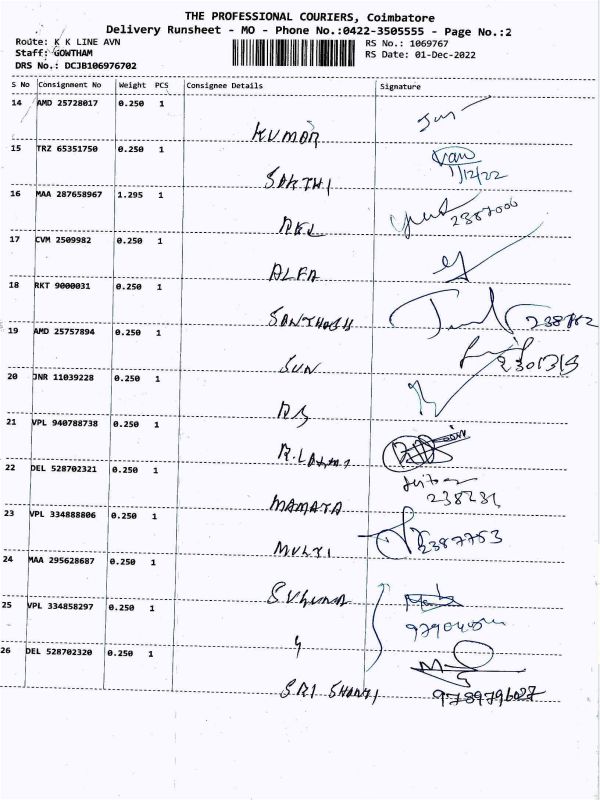 THE PROFESSIONAL COURIERS, Coimbatore
Delivery Runsheet - MO - Phone No.:0422-3505555 - Page No.:2
Route: K K LINE AVN
RS No.: 1069767
Staff: GOWTHAM
RS Date: 01-Dec-2022
DRS No.: DCJB106976702
S No Consignment No Weight PCS Consignee Details Signature
14 AMD 25728017 0.250 1
KUMAR
15 TRZ 65351750 0.250 1
SAKTHI
1/12/22
16 MAA 287658967 1.295 1
2387000
17 CVM 2509982 0.250 1
ALFA
18 RKT 9000031 0.250 1
SANTHOSH
19 AMD 25757894 0.250 1
SUN
20 JNR 11039228 0.250 1
21 VPL 940788738 0.250 1
R.LAXMI
22 DEL 528702321 0.250 1
MAMATA
238231
23 VPL 334888806 0.250 1
MULTI
2387753
24 MAA 295628687 0.250 1
SUGUNA
25 VPL 334858297 0.250 1
26 DEL 528702320 0.250 1
SRI SHAKTI
9789796027